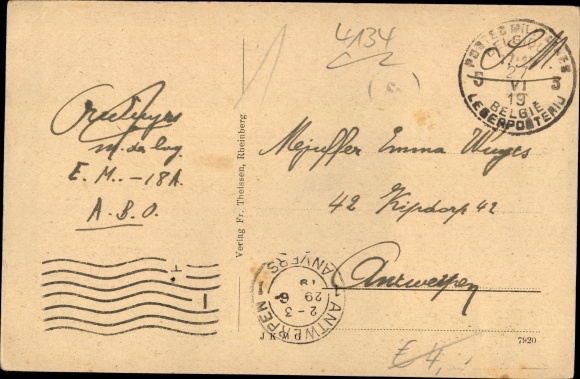 4134
S.M.
POSTES MILITAIRES
BELGIQUE
27
VI
19
5 5
BELGIE
LEGERPOSTERIJ
m. der lug.
E. M. - 18A.
A. B. O.
Verlag Fr. Theissen, Rheinberg
Mejuffer Emma Wuyts
42 Kipdorp 42
Antwerpen
ANTWERPEN 1
ANVERS
2-3
29 6
19
JKWD
7920
£ 4,-